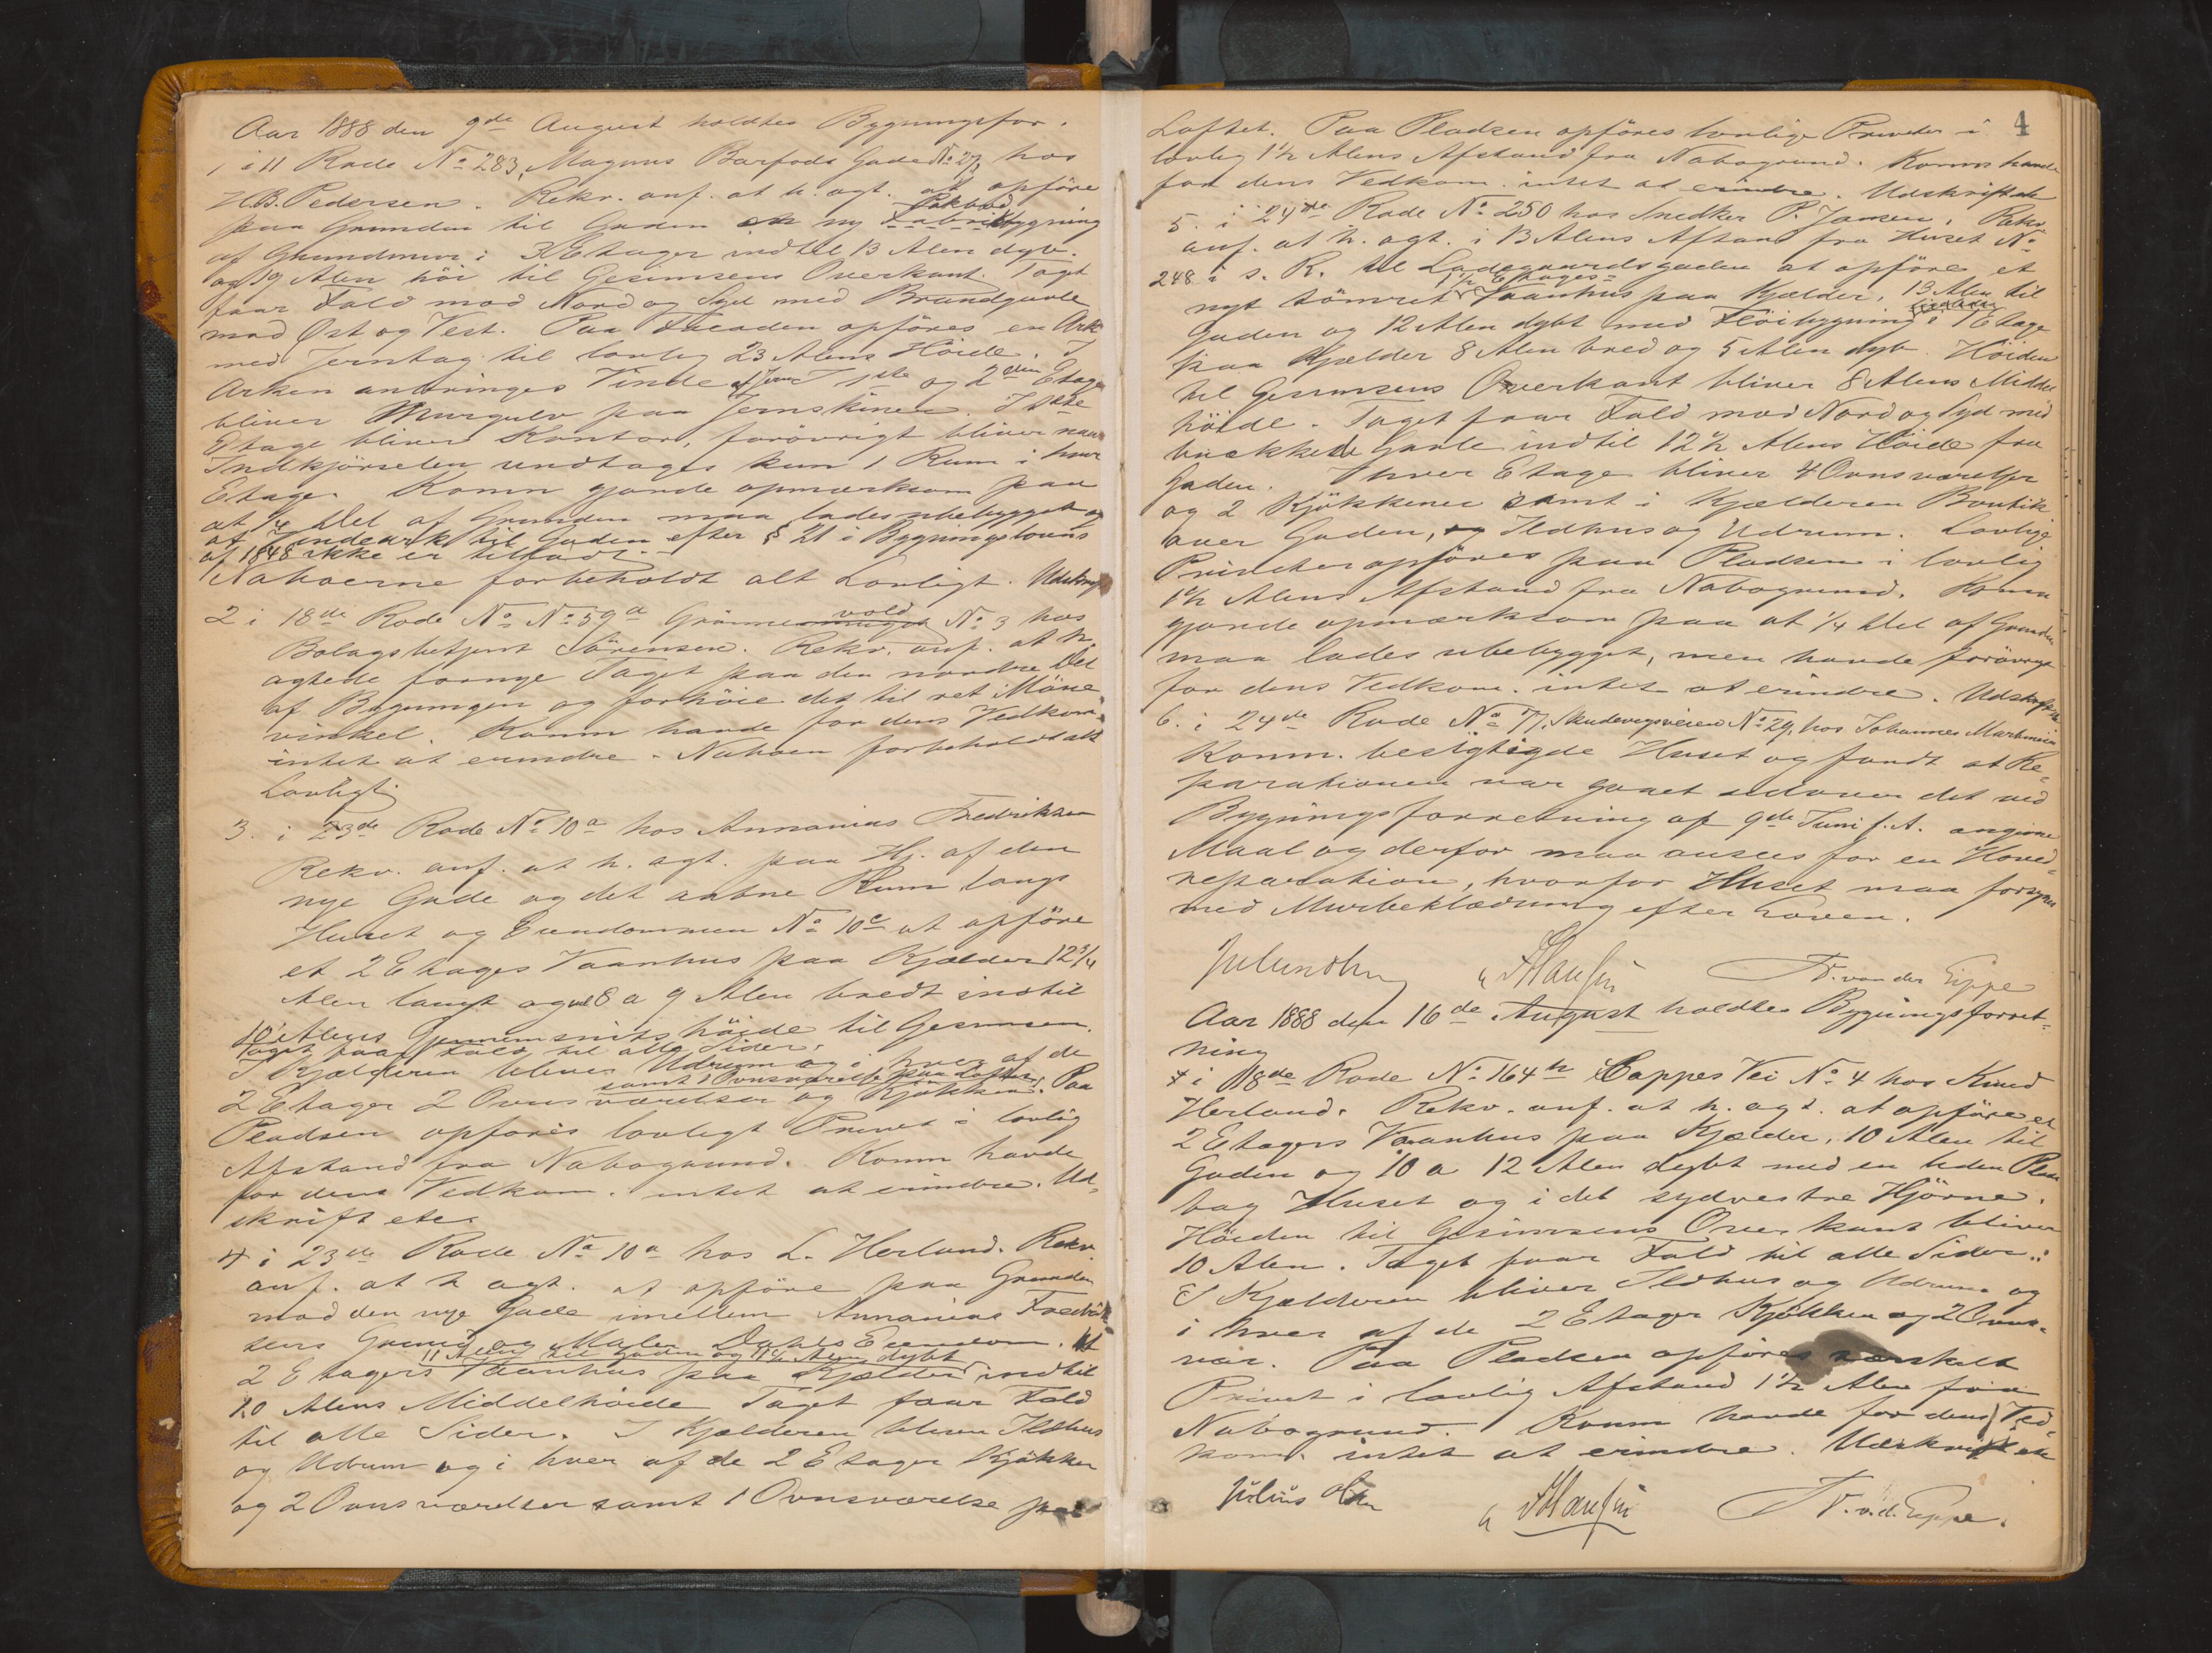 Aar 1888 den 9de August holdtes Bygningsfor.
1 i 11 Rode No 283, Magnus Barfods Gade No 27, hos
H.B. Pedersen. Rekv. anf. at h. agt. at opföre
paa Grunden til Gaden en ny Pakbod Fabrikbygning
af Grundmur i 3 Etager indtil 13 Alen dyb.
og 19 Alen höi til Gesimsens Overkant. Taget
faar Fald mod Nord og Syd med Brandgavle
mod Øst og Vest. Paa Facaden opföres en Ark
med Jerntag til lovlig 23 Alens Höide. I
Arken anbringes Vinde af Jern I 1ste og 2den Etage
bliver Murgulv paa Jernskinner. I 1ste
Etage bliver Kontor, forövrigt bliver naar
Indkjörselen undtages kun 1 Rum i hver
Etage. Komm gjorde opmærksom paa
at 1/4 Del af Grunden maa lades ubebygget og
at Vindeark til Gaden efter § 21 i Bygningslovens
af 1848 ikke er tilladt.
Naboerne forbeholdt alt Lovligt. Udskrift
2 i 18de Rode No No 59a Grönnevold No 3 hos
Bolagsbetjent Sörensen. Rekv. anf. at h.
agtede fornye Taget paa den nordre Del
af Bygningen og forhöie det til ret Möne
vinkel. Komm havde for dens Vedkom.
intet at erindre. Naboen forbeholdt alt
Lovligt.
3. i 23de Rode No 10a hos Annanias Fredriksen
Rekv. anf. at h. agt. paa Hj. af den
nye Gade og det aabne Rum langs
Huset og Eiendommen No 10c at opföre
et 2 Etages Vaanhus paa Kjælder 12 3/4
Alen langt og 8 a 9 Alen bredt indtil
10 Alens Gjennemsnitshöide til Gesimsen.
Taget faar Fald til alle Sider.
I Kjælderen bliver Udrum og i hver af de
samt 1 Ovnsværelse paa Loftet.
2 Etager 2 Ovnsværelser og Kjökken. Paa
Pladsen opföres lovligt Privet i lovlig
Afstand fra Nabogrund. Komm havde
for dens Vedkom. intet at erindre. Ud-
skrift etc.
4 i 23de Rode No 10a hos L. Herland. Rekv.
anf. at h agt. at opföre paa Grunden
mod den nye Gade imellem Annanias Fredrik
sens Grund og Maler Dahls Eiendom. Et
11 Alen til Gaden og 11 1/2 Alen dybt
2 Etagers Vaanhus paa Kjælder indtil
10 Alens Middelhöide Taget faar Fald
til alle Sider. I Kjælderen bliver Ildhus
og Udrum og i hver af de 2 Etager Kjökken
og 2 Ovnsværelser samt 1 Ovnsværelse paa
4
Loftet. Paa Pladsen opföres lovlige Priveter i
lovlig 1 1/2 Alens Afstand fra Nabogrund. Komm havde
for dens Vedkom. intet at erindre. Udskrift etc
5. i 24de Rode No 250 hos Snedker P. Jansen. Rekv
anf. at h. agt. i 13 Alens Afstand fra Huset No
248 i s. R. til Ladegaardsgaden at opföre et
nyt tömret 1 1/2 Etages Vaanhus paa Kjælder, 13 Alen til
Gaden og 12 Alen dybt med Flöibygning i 1 Etage
paa Kjælder 8 Alen bred og 5 Alen dyb. Höiden
til Gesimsens Overkant bliver 8 Alens Middel
höide. Taget faar Fald mod Nord og Syd med
brækkede Gavle indtil 12 1/2 Alens Höide fra
Gaden. I hver Etage bliver 4 Ovnsværelser
og 2 Kjökkener samt i Kjælderen Boutik
over Gaden, og Ildhus og Udrum. Lovlige
Priveter opföres paa Pladsen i lovlig
1 1/2 Alens Afstand fra Nabogrund. Komm
gjorde opmærksom paa at 1/4 Del af Grunden
maa lades ubebygget, men havde forövrigt
for dens Vedkom. intet at erindre. Udskrift etc
6. i 24de Rode No 77, Skudevigsveien No 29, hos Johannes Martinsen
Komm. besigtigede Huset og fandt at Re-
parationen var gaaet udover det ved
Bygningsforretning af 9de Juni f.A. angivne
Maal og derfor maa ansees for en Hoved-
reparation, hvorfor Huset maa forsynes
med Murbeklædning efter Loven.
Julius Olsen Hansen Fr. von der Lippe
Aar 1888 den 16de August holdtes Bygningsforret-
ning
i 18de Rode No 164h Cappes Vei No 4 hos Knud
Herland. Rekv. anf. at h. agt. at opföre et
2 Etagers Vaanhus paa Kjælder, 10 Alen til
Gaden og 10 a 12 Alen dybt med en liden Plads
bag Huset og i det sydvestre Hjörne.
Höiden til Gesimsens Overkant bliver
10 Alen. Taget faar Fald til alle Sider.
I Kjælderen bliver Ildhus og Udrum og
i hver af de 2 Etager Kjökken og 2 Ovns-
vær. Paa Pladsen opföres særskilt
Privet i lovlig Afstand 1 1/2 Alen fra
Nabogrund. Komm havde for dens Ved-
kom. intet at erindre. Udskrift etc
Julius Olsen Hansen Fr. v. d. Lippe.